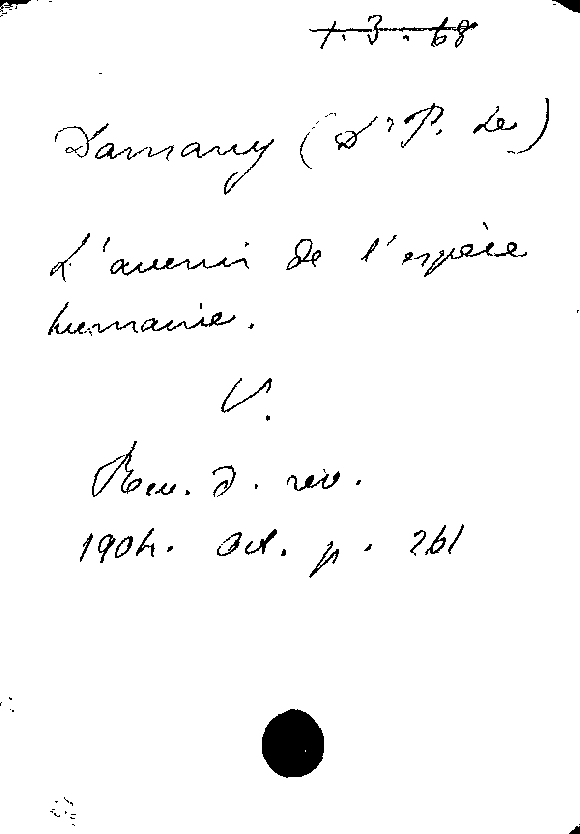 1.3.68
Damany (Dr P. Le)
L'avenir de l'espèce
humaine.
V.
Rev. d. rev.
1904. Oct. p. 261